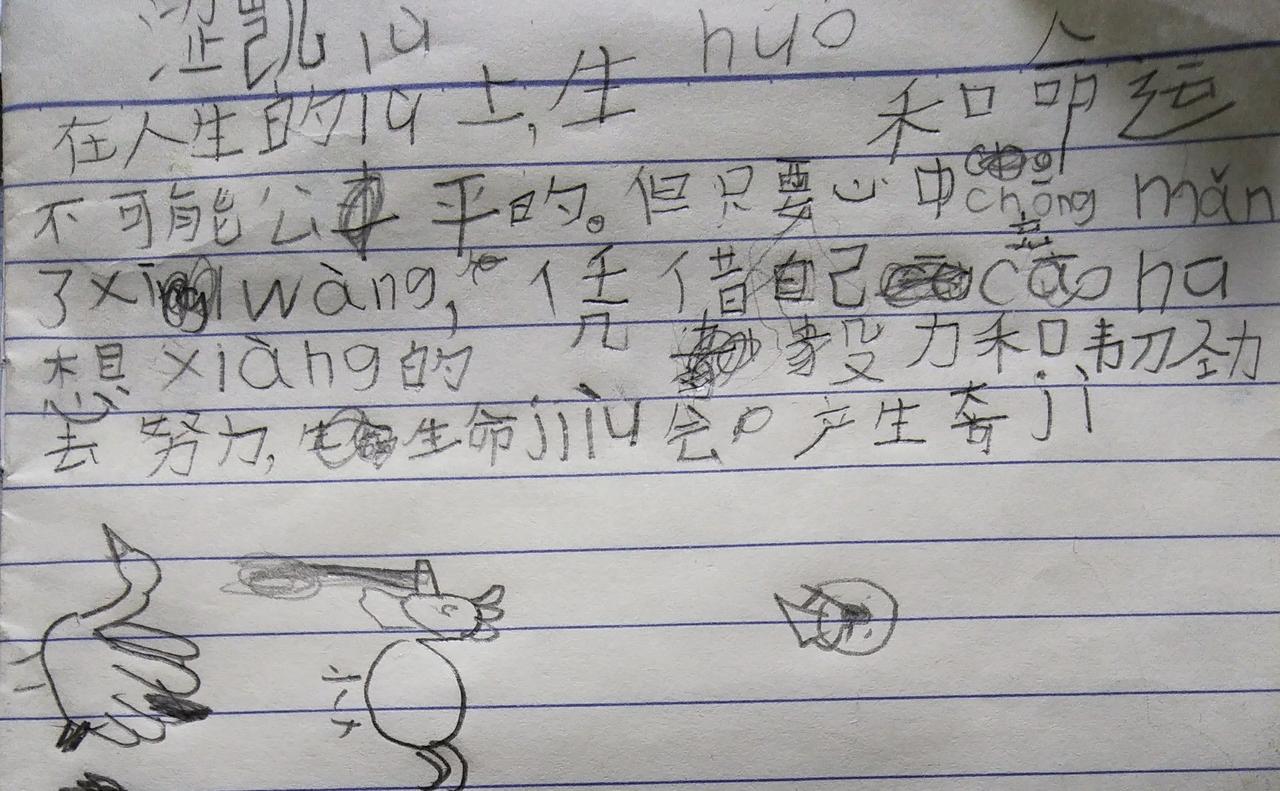 涩凯 lù huó 人
在人生的lù上,生 和命运
不可能公平的。但只要心中chōng mǎn
了xīwàng, 凭借自己cāo
想xiàng的 毅力和韧劲
去努力, 生命jiù会 产生奇jì